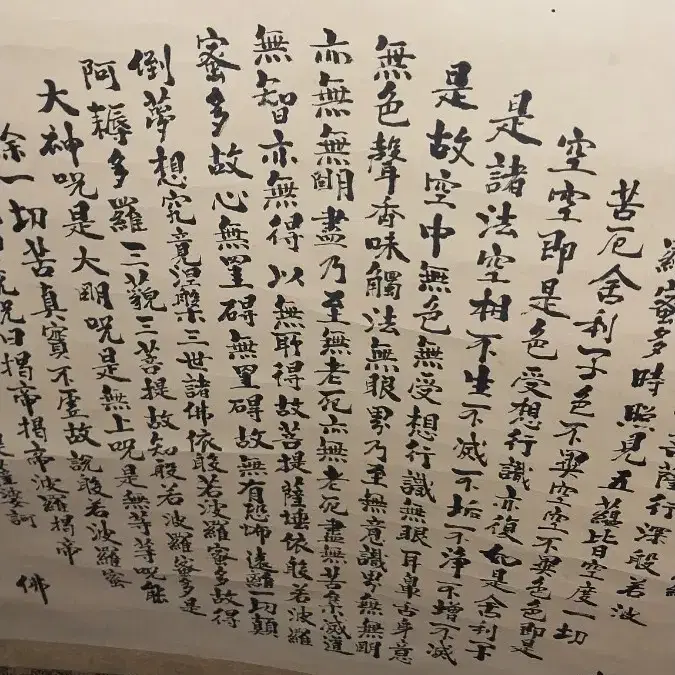 菩薩行深般若波
羅蜜多時照見五蘊皆空度一切
苦厄舍利子色不異空空不異色色即是
空空即是色受想行識亦復如是舍利子
是諸法空相不生不滅不垢不淨不增不滅
是故空中無色無受想行識無眼耳鼻舌身意
無色聲香味觸法無眼界乃至無意識界無無明
亦無無明盡乃至無老死亦無老死盡無苦集滅道
無智亦無得以無所得故菩提薩埵依般若波羅
蜜多故心無罣碍無罣碍故無有恐怖遠離一切顛
倒夢想究竟涅槃三世諸佛依般若波羅蜜多故得
阿耨多羅三藐三菩提故知般若波羅蜜多是
大神呪是大明呪是無上呪是無等等呪能
除一切苦真實不虛故說般若波羅蜜
說呪曰揭帝揭帝波羅揭帝
薩婆訶
佛